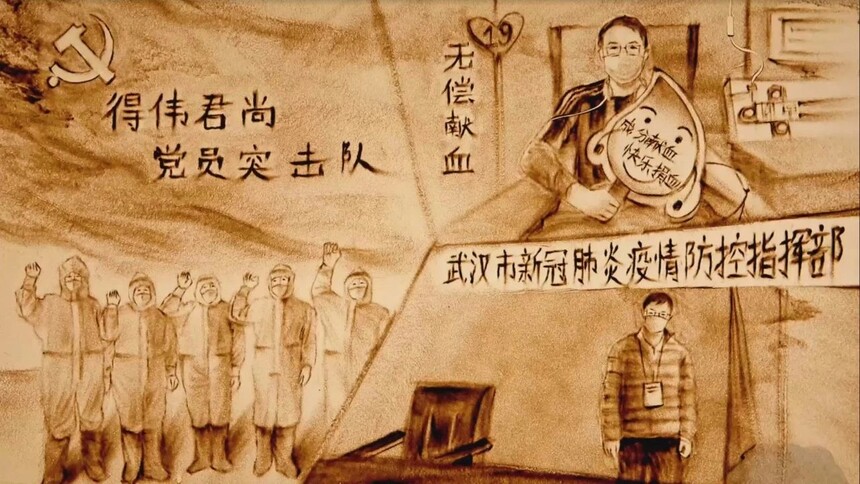 得伟君尚
党员突击队
无偿献血
19
成分献血
快乐捐血
武汉市新冠肺炎疫情防控指挥部